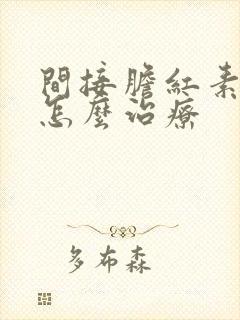 間接膽紅素
怎麼治療
多布森